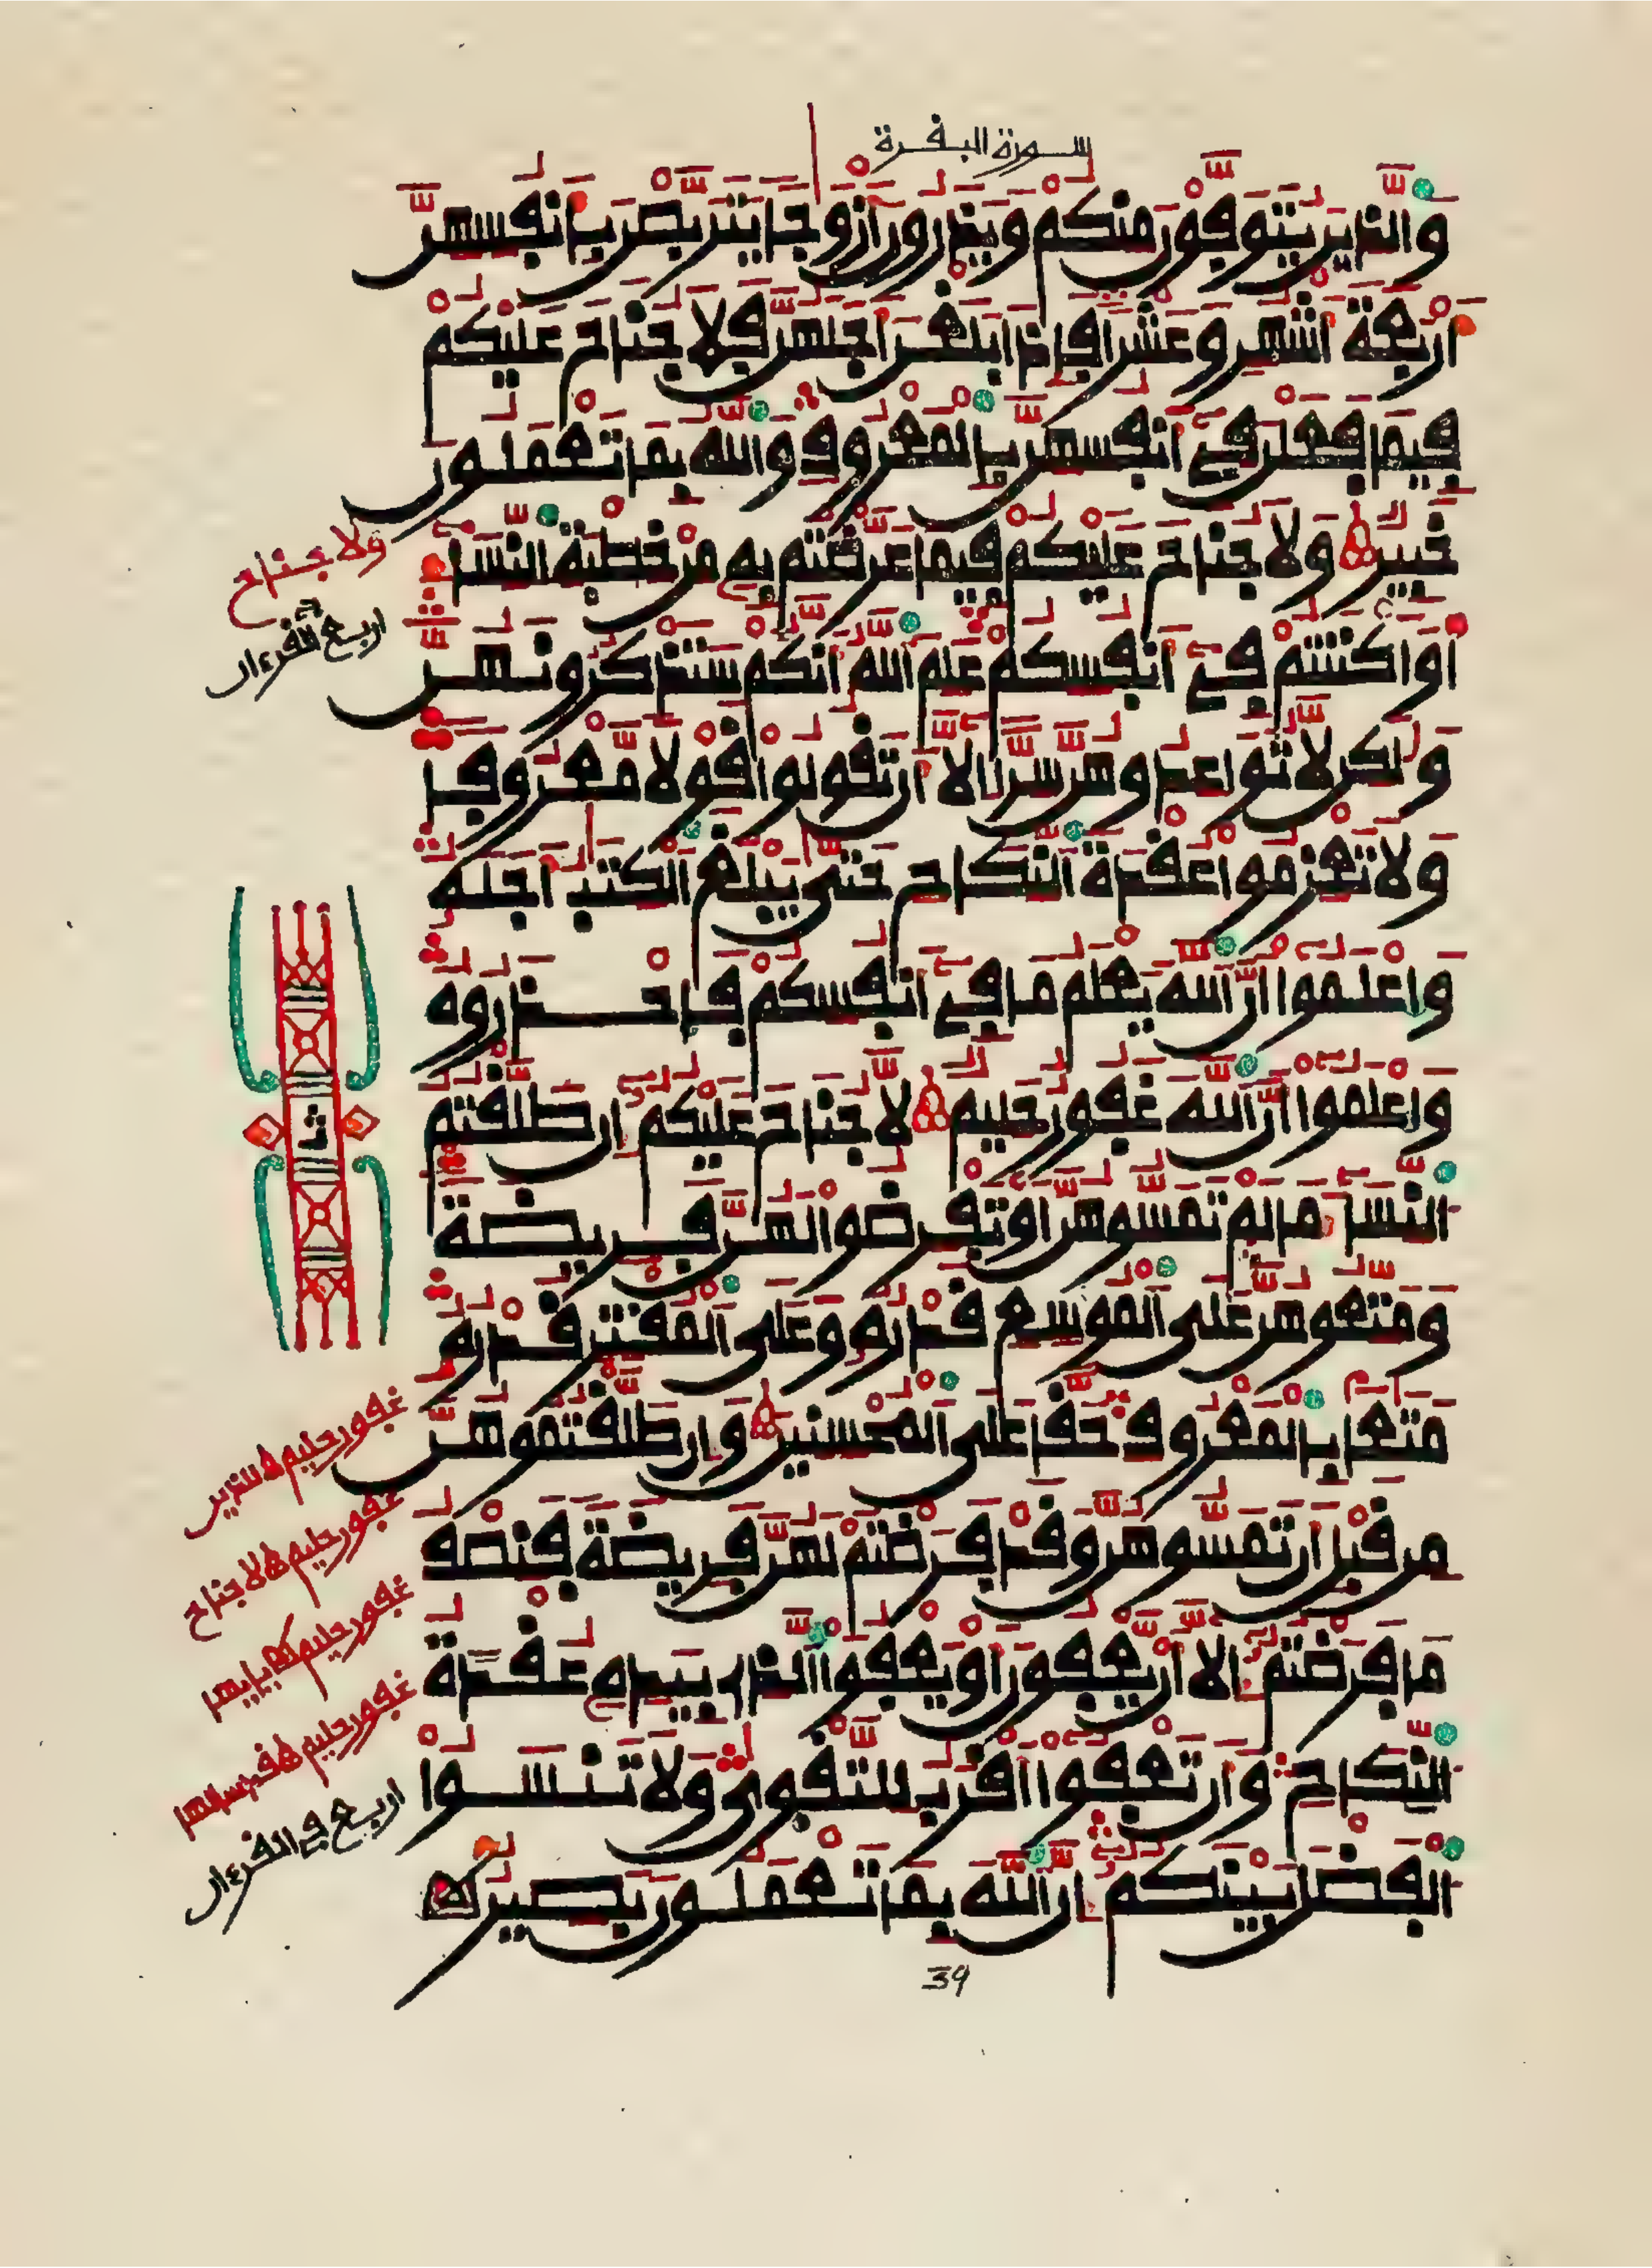 سورة البقرة
والذين يتوفون منكم ويذرون أزوجا يتربصن بأنفسهن
أربعة أشهر وعشرا فإذا بلغن أجلهن فلا جناح عليكم
فيما فعلن في أنفسهن بالمعروف والله بما تعملون
خبير ولا جناح عليكم فيما عرضتم به من خطبة النساء
أو اكننتم في أنفسكم علم الله أنكم ستذكرونهن
ولكن لا تواعدوهن سرا إلا أن تقولوا قولا معروفا
ولا تعزموا عقدة النكاح حتى يبلغ الكتب أجله
واعلموا أن الله يعلم ما في أنفسكم فاحذروه
واعلموا أن الله غفور حليم لا جناح عليكم إن طلقتم
النساء ما لم تمسوهن أو تفرضوا لهن فريضة
ومتعوهن على الموسع قدره وعلى المقتر قدره
متعا بالمعروف حقا على المحسنين وإن طلقتموهن
من قبل أن تمسوهن وقد فرضتم لهن فريضة فنصف
ما فرضتم إلا أن يعفون أو يعفوا الذي بيده عقدة
النكاح وأن تعفوا أقرب للتقوى ولا تنسوا
الفضل بينكم إن الله بما تعملون بصير
39
ولا جناح
اربع في القرءان
ثما
غفور حليم للذين
غفور حليم لا جناح
غفور حليم يأيها
غفور حليم قد سألها
اربع في القرءان